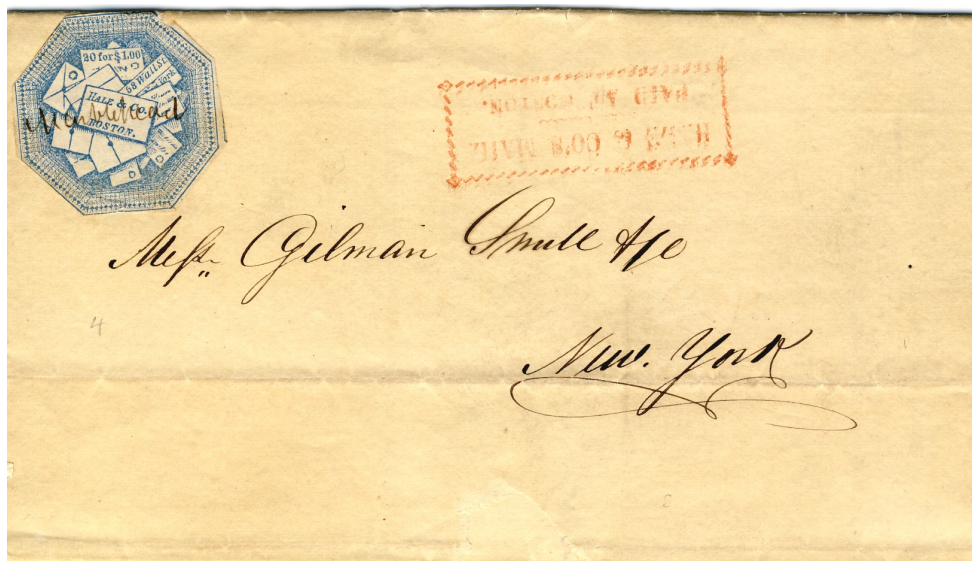 20 for $1.00
58 Wall St
York
HALE & Co.
BOSTON.
Marblehead
HALE & CO'S MAIL
PAID AT BOSTON.
Mess. Gilman Small & Co
New. York
4